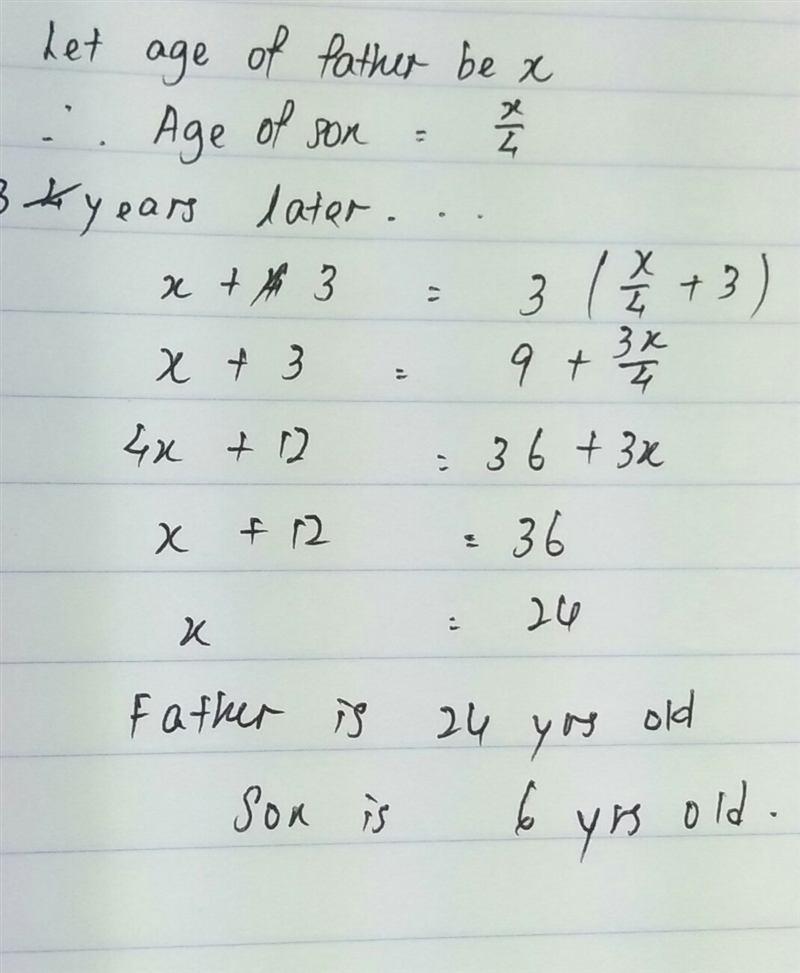 Let age of father be x
∴ Age of son = x/4
3 years later...
x + 3 = 3 (x/4 + 3)
x + 3 = 9 + 3x/4
4x + 12 = 36 + 3x
x + 12 = 36
x = 24
Father is 24 yrs old
Son is 6 yrs old.